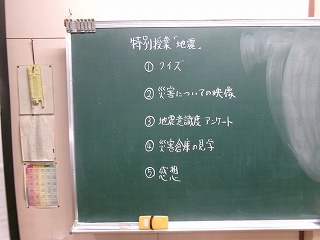 特別授業「地震」
① クイズ
② 災害についての映像
③ 地震意識度アンケート
④ 災害倉庫の見学
⑤ 感想